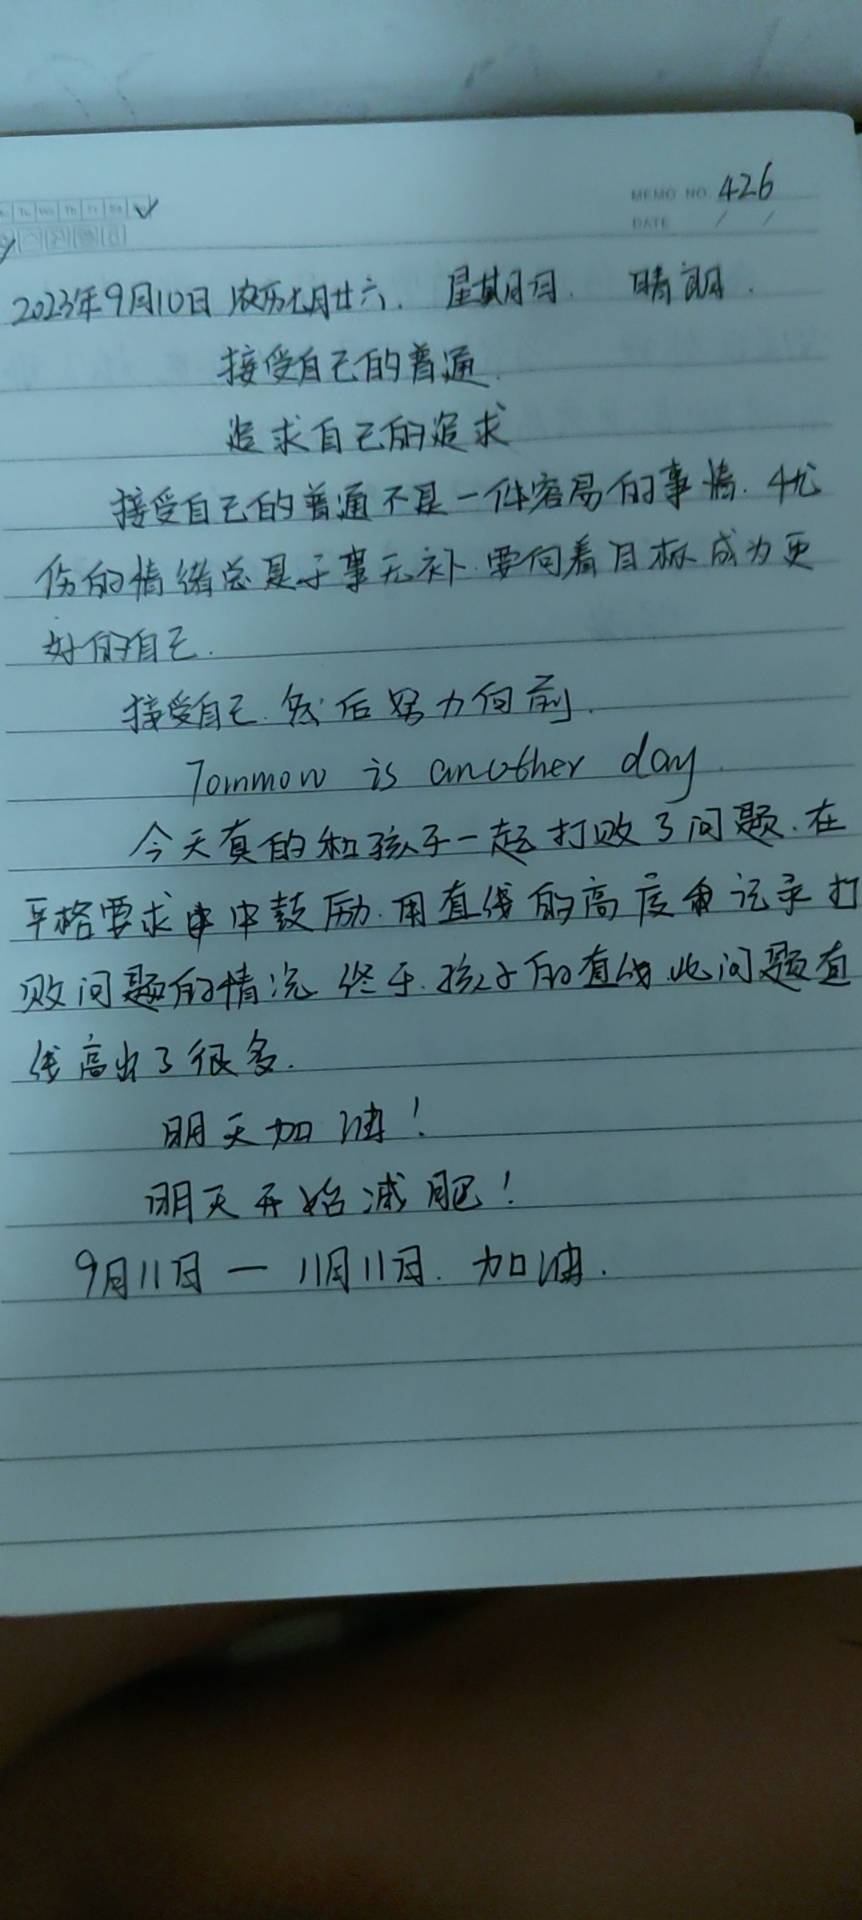 MEMO NO. 426
Tu We Th Fr Sa
DATE / /
2023年9月10日 农历七月廿六. 星期日. 晴朗.
接受自己的普通.
追求自己的追求
接受自己的普通不是一件容易的事情. 忧
伤的情绪总是于事无补. 要向着目标成为更
好的自己.
接受自己. 然后努力向前.
Tommow is another day.
今天真的和孩子一起打败了问题. 在
严格要求中鼓励. 用直线的高度来记录打
败问题的情况. 终于. 孩子的直线比问题直
线高出了很多.
明天加油!
明天开始减肥!
9月11日 — 11月11日. 加油.